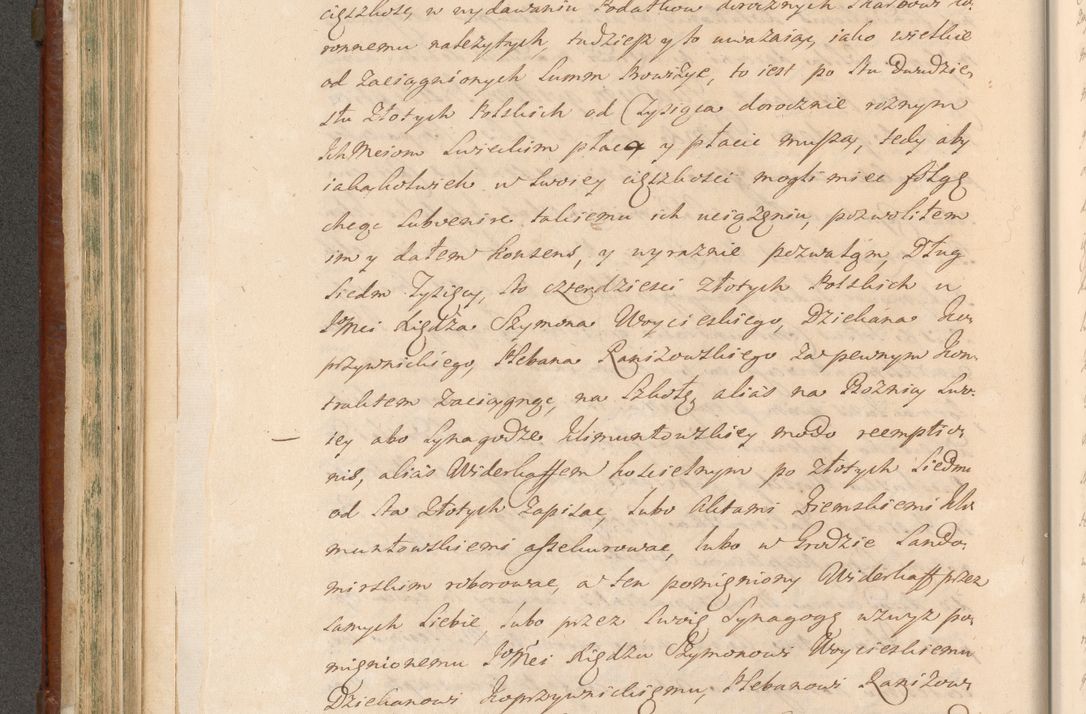 cięszkosc, w wydawaniu Podatkow dorocznych Skarbowi Ko,
ronnemu należytych, tudziesz y to uważaiąc, iako wielkie
od zaciągnionych Summ Prowizye, to iest po stu dwudzie,
stu Złotych Polskich od Tysiąca dorocznie roznym
IchMciom Swieckim płacą y płacic muszą, tedy aby
iakążkolwiek w swoiey cięszkosci mogli miec folgę
chcąc subvenire takiemu ich uciążęniu, pozwoliłem
im y dałem konsens, y wyraznie pozwalam Dług
Siedm Tysięcy, sto czterdziesci Złotych Polskich u
JoMci Xiędza Szymona Woycieskiego, Dziekana Ko,
przywnickiego, Plebana Raniżowskiego za pewnym Kon,
traktem zaciągnąc, na Szkołę, alias na Boznią Swo,
iey abo Synagodze Klimuntowskiey modo reemptio,
nis, alias Widerkaffem kościelnym po Złotych Siedm
od sta Złotych zapisac, lubo Aktami Ziemskiemi Kli
muntowskiemi assekurowac, lubo w Grodzie Sando,
mirskim roborowac, a ten pomięniony Widerkaff przez
samych siebie, lubo przez swoią Synagogę wzwyz po,
mięnionemu JoMci Xiędzu Szymonowi Woycieskiemu
Dziekanowi Koprzywnickiemu, Plebanowi Raniżows